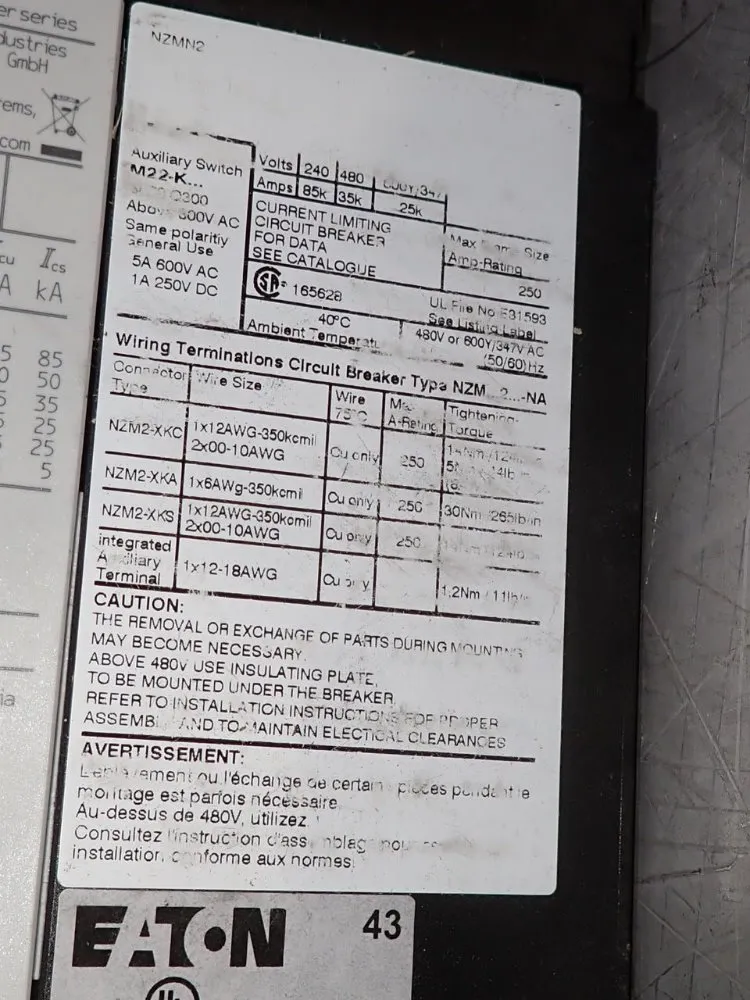 er series
dustries
GmbH
ems,
com
Icu Ics
A kA
5 85
0 50
5 35
5 25
25
5
ia
NZMN2
Auxiliary Switch
M22-K...
Volts 240 480
Amps 85k 35k 25k
Q300
Above 600V AC
Same polaritiy
General Use
5A 600V AC
1A 250V DC
CURRENT LIMITING
CIRCUIT BREAKER
FOR DATA
SEE CATALOGUE
Max Size
Amp-Rating
250
SA 165628
UL File No E31593
See Listing Label
40°C
Ambient Temperatu
480V or 600Y/347V AC
(50/60)Hz
Wiring Terminations Circuit Breaker Type NZM 2...-NA
Connector Type
Wire Size
Wire 75°C
A-Rating
Tightening-Torque
NZM2-XKC 1x12AWG-350kcmil
2x00-10AWG
Cu only 250
NZM2-XKA 1x6AWg-350kcmi Cu only 250 30Nm 265lb/in
NZM2-XKS 1x12AWG-350kcmil
2x00-10AWG
Cu only 250
integrated
Terminal
1x12-18AWG
Cu only
1,2Nm / 11lb/
CAUTION:
THE REMOVAL OR EXCHANGE OF PARTS DURING MOUNTING
MAY BECOME NECESSARY.
ABOVE 480V USE INSULATING PLATE,
TO BE MOUNTED UNDER THE BREAKER.
REFER TO INSTALLATION INSTRUCTIONS FOR PROPER
ASSEMBL AND TO MAINTAIN ELECTICAL CLEARANCES
AVERTISSEMENT:
ou l'échange de certain pièces pendant le
montage est parfois nécessaire.
Au-dessus de 480V, utilizez
Consultez l'instruction d'assemblage pour
installation conforme aux normes.
EATON
43
UL